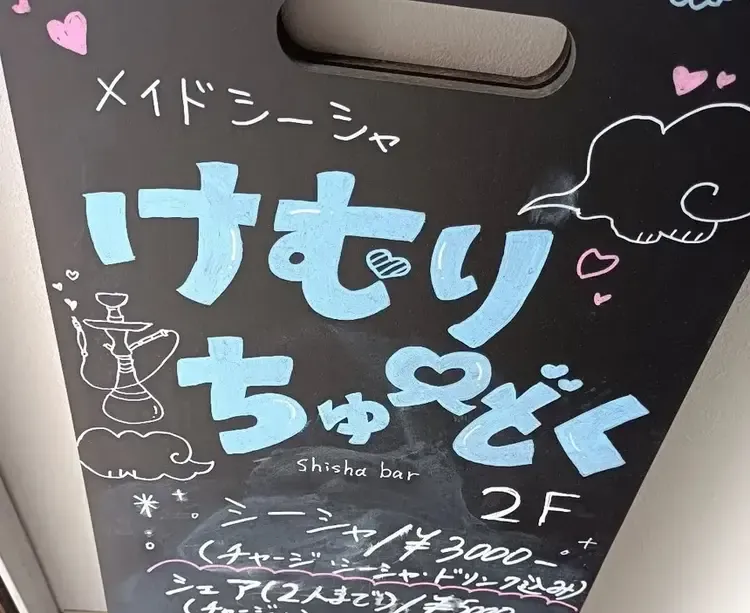 メイドシーシャ
けむり
ちゅ〜どく
shisha bar
2F
シーシャ/¥3000-
(チャージ・シーシャ・ドリンク込み)
シェア(2人まで)/¥5000
(チャージ